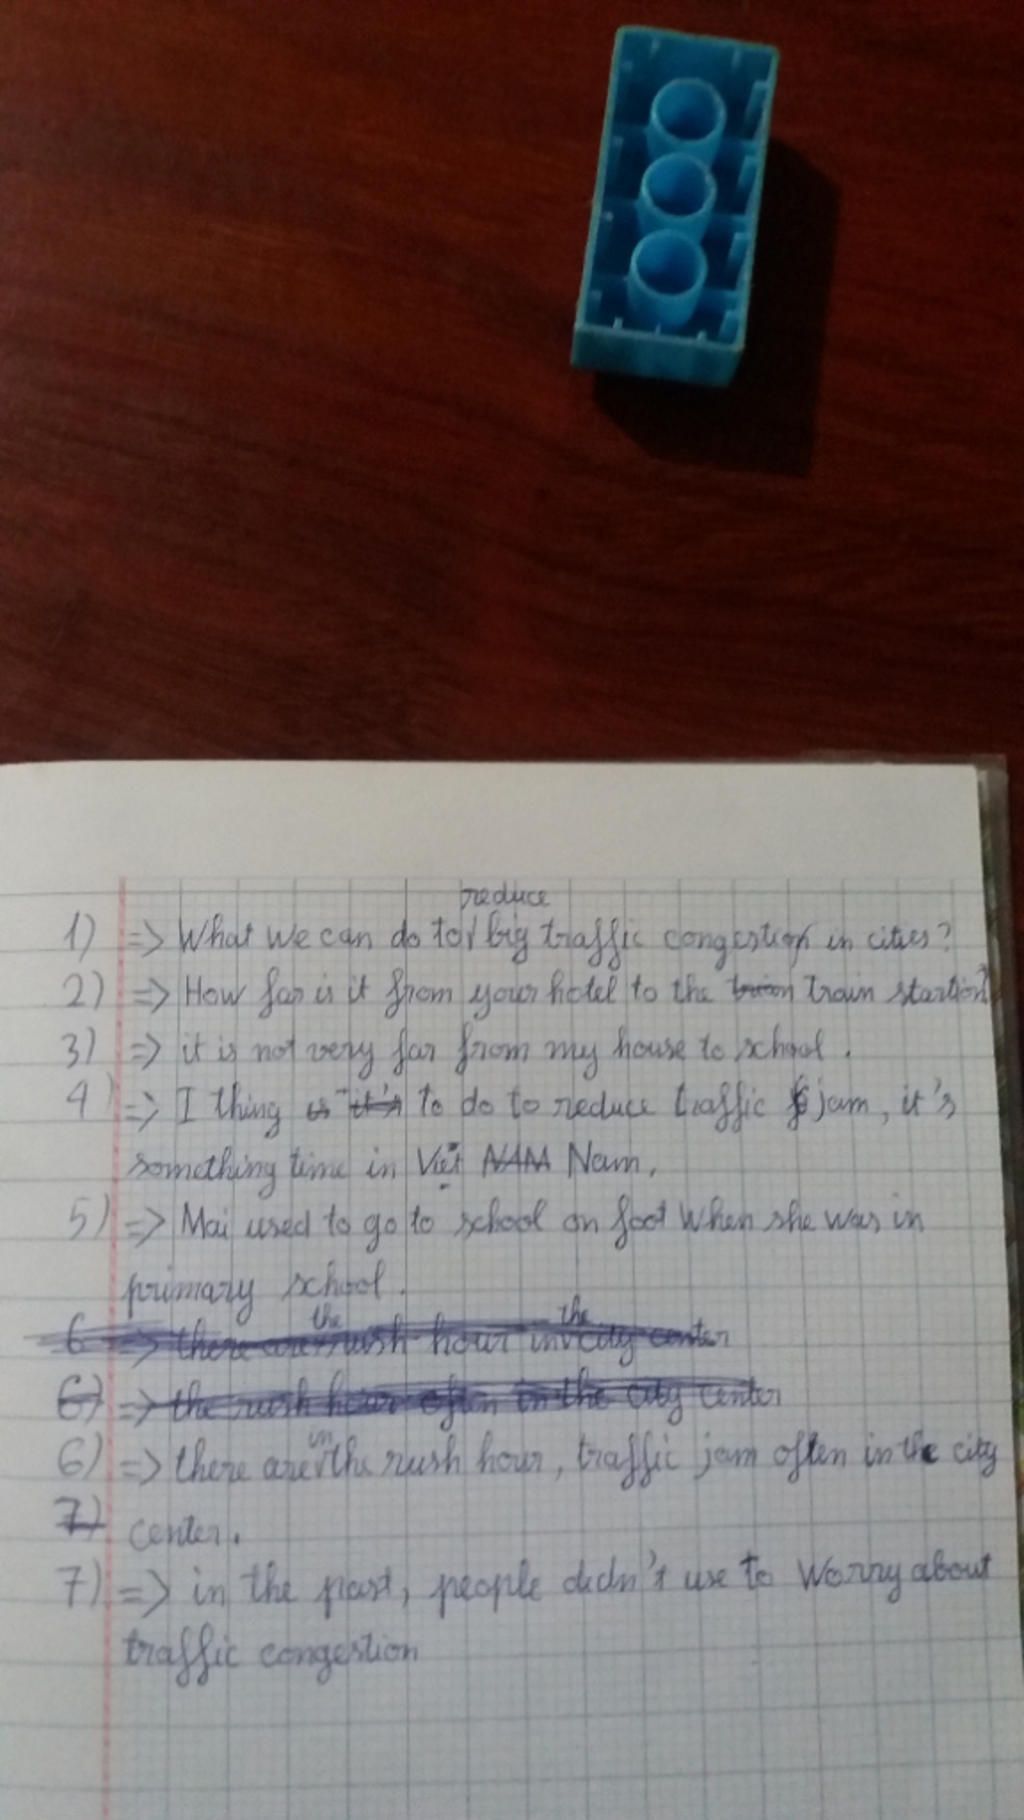 reduce
1) => What we can do to big traffic congestion in cities?
2) => How far is it from your hotel to the train train startion?
3) => it is not very far from my house to school.
4) => I thing is it's to do to reduce traffic jam, it's
something time in Việt NAM Nam.
5) => Mai used to go to school on foot when she was in
primary school.
the the
6 => there are rush hour in city center
6) => the rush hour often in the city center
in
6) => there are the rush hour, traffic jam often in the city
7) center.
7) => in the past, people didn't use to worry about
traffic congestion